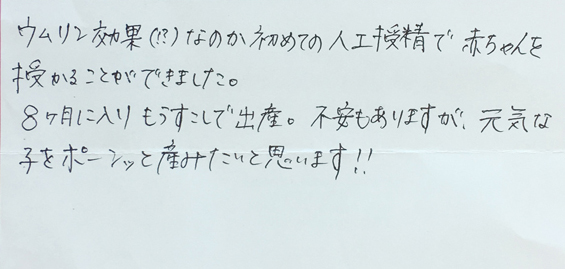 ウムリン効果(!?)なのか初めての人工授精で赤ちゃんを
授かることができました。
8ヶ月に入りもうすこしで出産。不安もありますが、元気な
子をポーンッと産みたいと思います!!